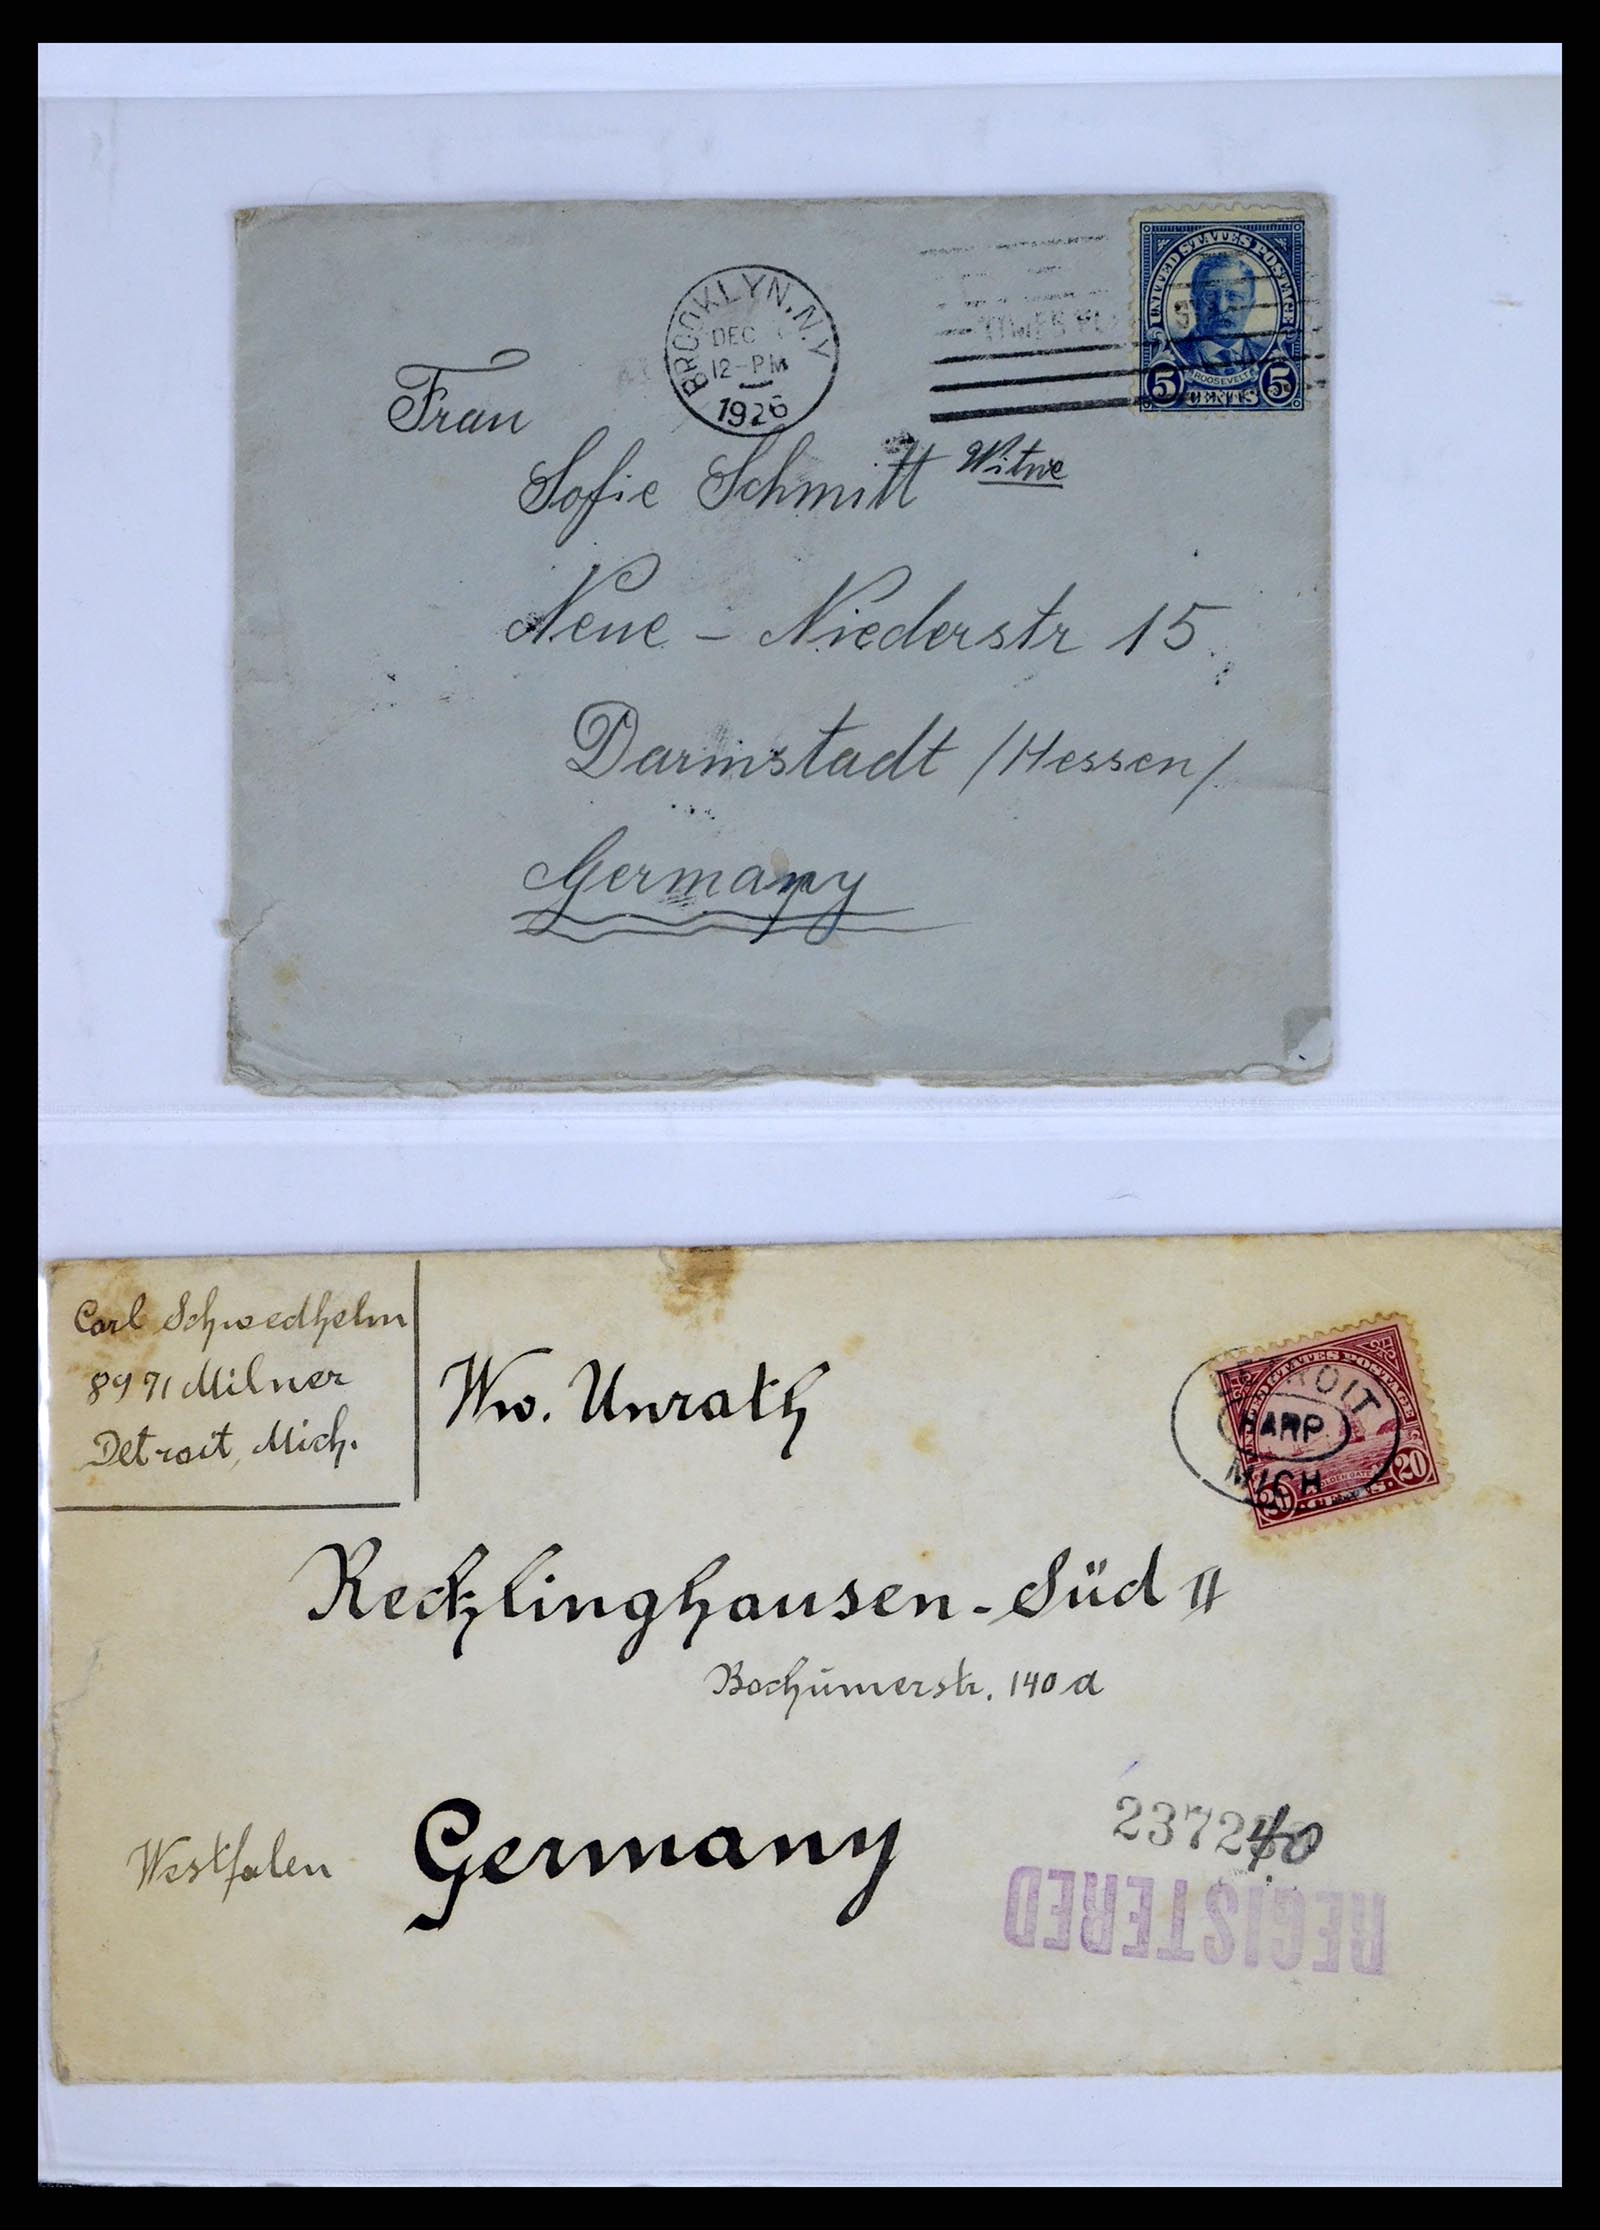 BROOKLYN, N.Y
DEC
12-PM
1926
UNITED STATES POSTAGE
ROOSEVELT
5 CENTS 5
Frau
Sofie Schmitt Witwe
Neue - Niederstr 15
Darmstadt /Hessen/
Germany
Carl Schwedhelm
8971 Milner
Detroit, Mich.
Ww. Unrath
UNITED STATES POSTAGE
GOLDEN GATE
20 CENTS 20
DETROIT
HARP.
MICH
Recklinghausen-Süd II
Bochumerstr. 140a
Westfalen Germany
REGISTERED